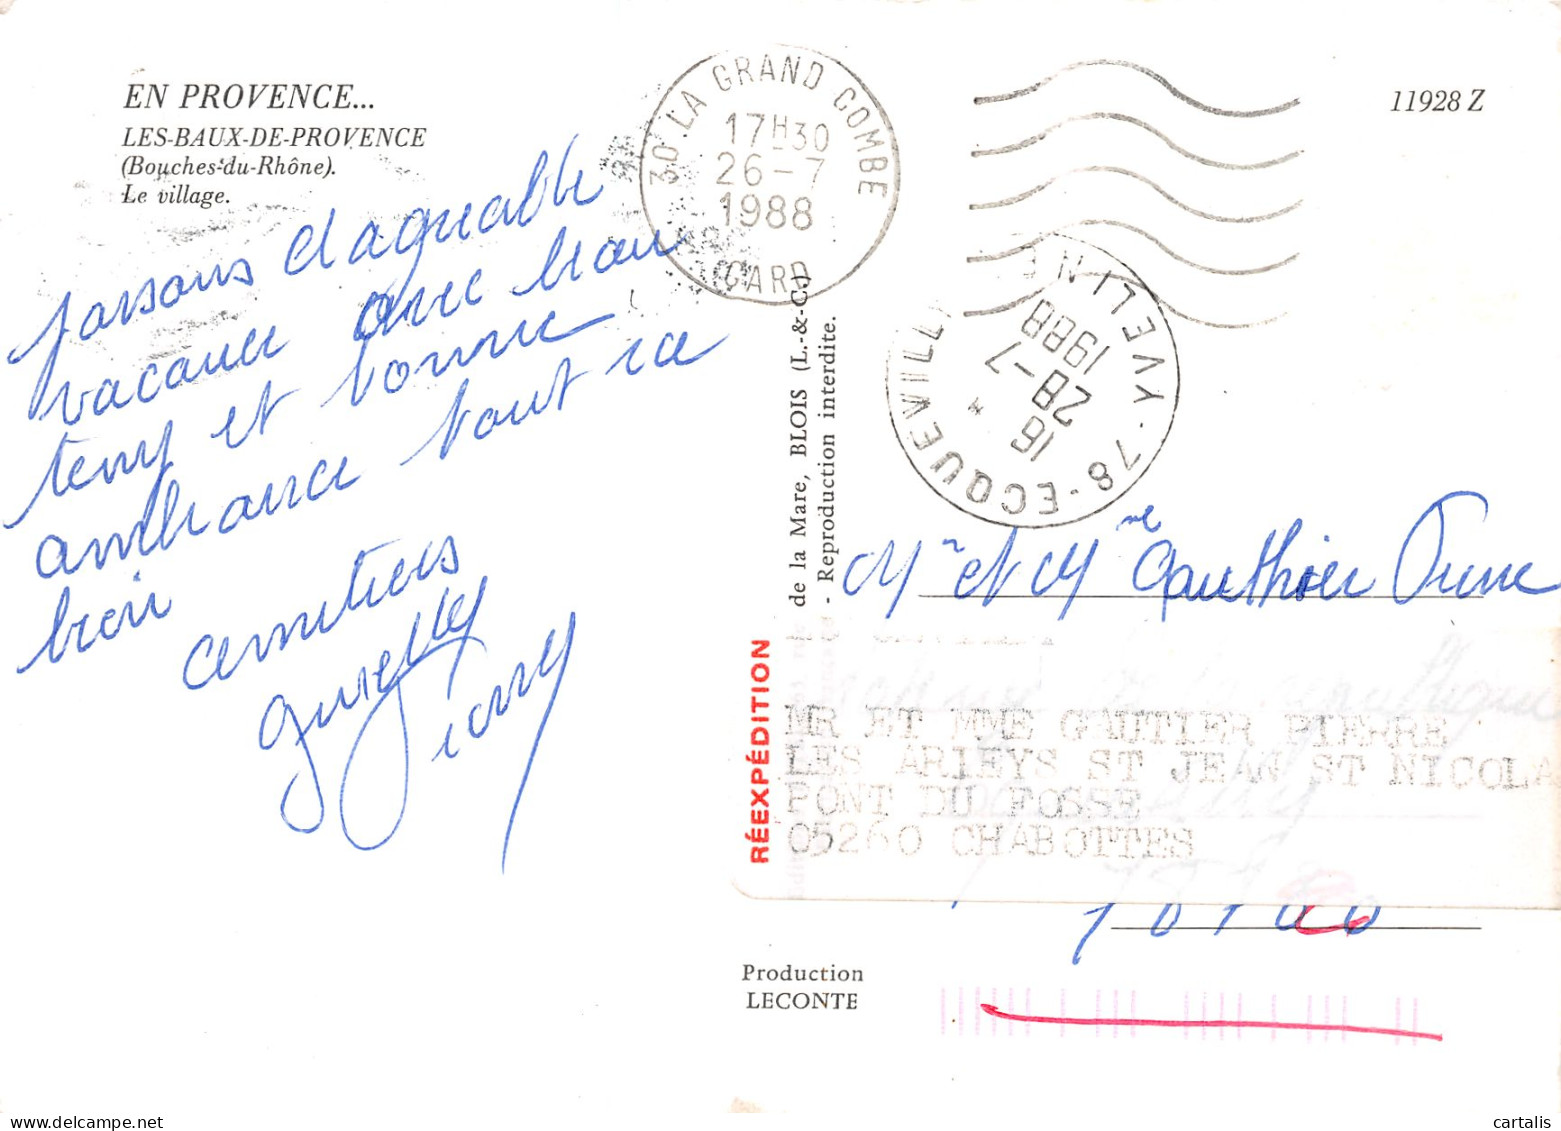 EN PROVENCE...
LES-BAUX-DE-PROVENCE
(Bouches-du-Rhône).
Le village.
11928 Z
30 LA GRAND COMBE
17H30
26-7
1988
GARD
78-ECQUEVILL YVELINE
16
28-7
1988
*
passons d'agréable
vacance avec beau
temps et bonne
ambiance tout va
bien
amitiers
de la Mare, BLOIS (L.-&-C.)
- Reproduction interdite.
Mr et Mme Gauthier Pierre
RÉEXPÉDITION
MR ET MME GAUTIER PIERRE
LES ARIEYS ST JEAN ST NICOLA
PONT DU FOSSE
05260 CHABOTTES
Production
LECONTE
cartalis